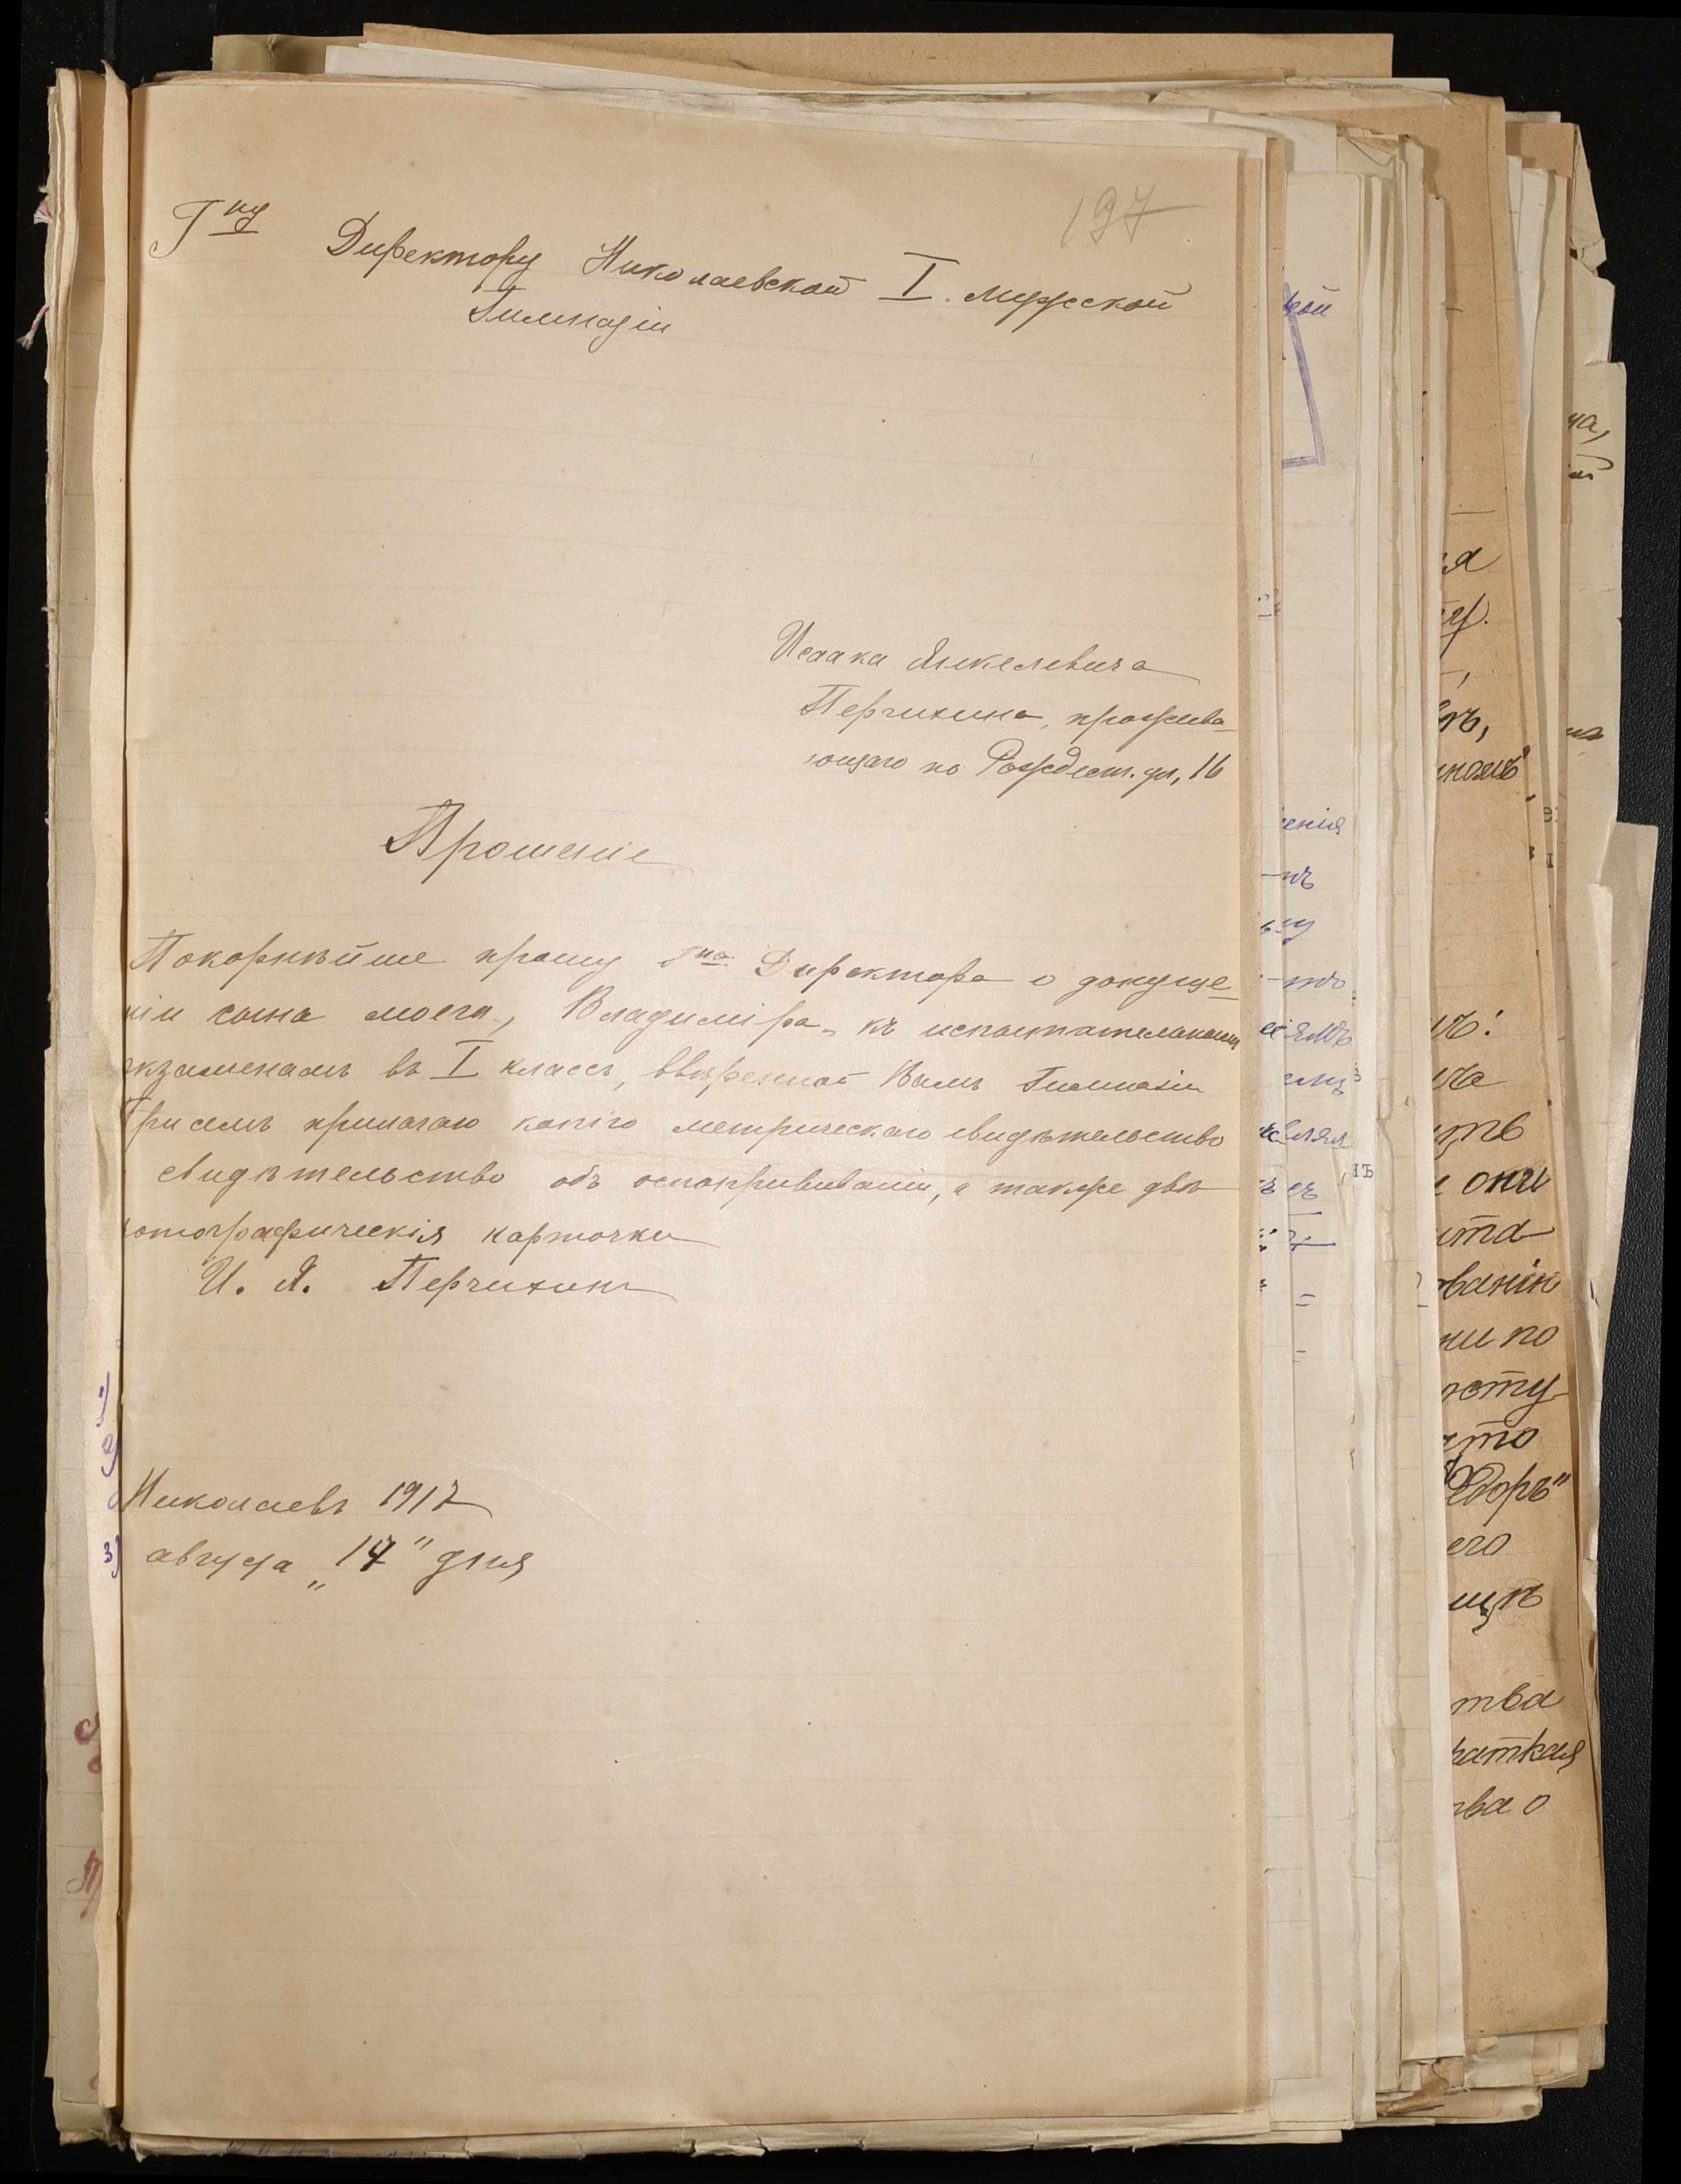 197
Гну Директору Николаевской I. мужской
Гимназіи
Исаака Янкелевича
Перчихина, прожива-
ющаго по Рождест. ул, 16
Прошеніе
Покорнѣйше прошу Гна Директора о допуще-
ніи сына моего, Владиміра, къ испытательнымъ
экзаменамъ въ I классъ, ввѣренной Вамъ Гимназіи
При семъ прилагаю копію метрическаго свидѣтельство
свидѣтельство объ оспопрививаніи, а также двѣ
фотографическія карточки
И. Я. Перчихинъ
Николаевъ 1917
августа „14" дня